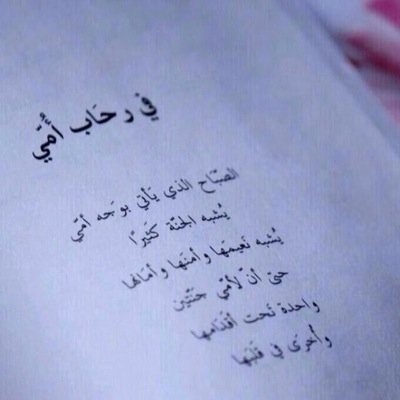 في رحَاب أُمّي
الصّباح الذي يَأتي بوَجه أمّي
يُشبه الجنّة كَثيرًا
يُشبه نَعيمها وأمنَها وأمَانها
حتى أنّ لأمّي جَنّتين
واحدة تَحت أقدَامها
وأُخرى في قَلبها